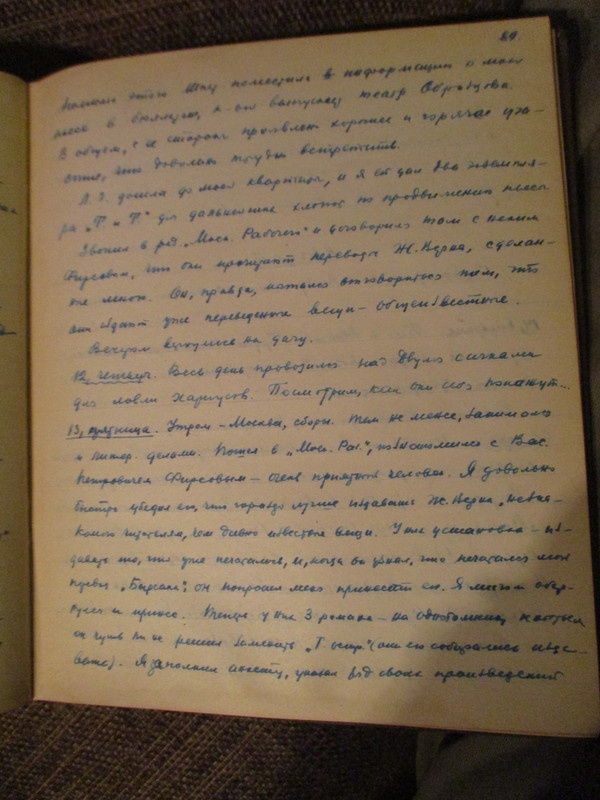 89.
Помимо этого Шпет поместила в информации о моей
пьесе в бюллетене, к-ый выпускает театр Образцова.
В общем, с её стороны проявлено хорошее и горячее уча-
стие, что довольно трудно встретить.
Л. Г. дошла до моей квартиры, и я ей дал два экземпля-
ра „Т и Т" для дальнейших хлопот по продвижению пьесы
Звонил в ред. „Моск. Рабочего" и договорился там с неким
Фирсовым, что они прочитают переводы Ж. Верна, сделан-
ные мною. Он, правда, пытался отговориться тем, что
они издают уже переведенные вещи – общеизвестные.
Вечером вернулись на дачу.
12, четверг. Весь день провозился над двумя сачками
для ловли хариусов. Посмотрим, как они себя покажут.
13, пятница. Утром – Москва, сборы. Тем не менее, занимался
и литер. делами. Пошел в „Моск. Раб.", познакомился с Вас.
Петровичем Фирсовым – очень приятный человек. Я довольно
быстро убедил его, что гораздо лучше издавать Ж. Верна, незна-
комого читателям, чем давно известные вещи. У них установка – из-
давать то, что уже печаталось, и, когда он узнал, что печатался мой
перевод он попросил меня принести его. Я мигом обер-
нулся и принес. Теперь у них 3 романа – на однотомник, которым
он чуть ли не решил заменить „Т. остр." (они его собирались изда-
вать). Я заполнил анкету, указал ряд своих произведений